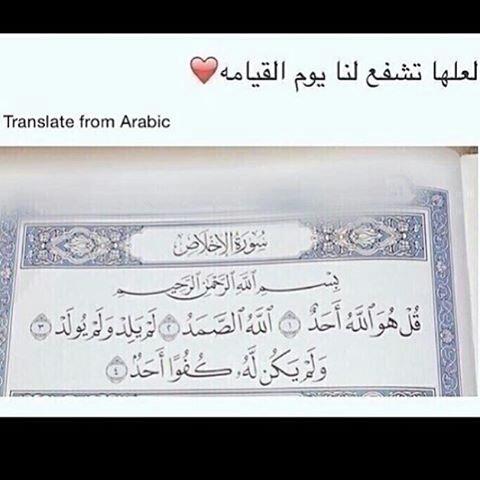 لعلها تشفع لنا يوم القيامه❤
Translate from Arabic
سُورَةُ الإِخْلَاصِ
بِسْمِ ٱللَّهِ ٱلرَّحْمَٰنِ ٱلرَّحِيمِ
قُلْ هُوَ ٱللَّهُ أَحَدٌ ١ ٱللَّهُ ٱلصَّمَدُ ٢ لَمْ يَلِدْ وَلَمْ يُولَدْ ٣
وَلَمْ يَكُن لَّهُۥ كُفُوًا أَحَدٌۢ ٤